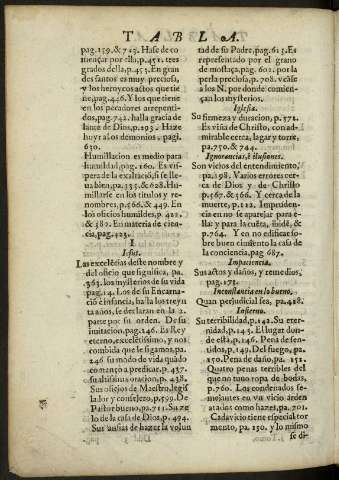 TABLA.
pag.159.& 745. Hase de co
mençar por ello,p.451. tres
grados della,p.453. En gran
des santos es muy preciosa,
y los heroycos actos que tie
ne,pag.446. Y los que tiene
en los pecadores arrepenti-
dos,pag.742. halla gracia de
lante de Dios,p.193. Haze
huyr a los demonios, pagi.
630.
Humillacion es medio para
humildad, pag.160. Es vis-
pera de la exaltaciõ,si se lle-
ua bien,pa.335.& 628.Hu-
millarse en los titulos y re-
nombres,p.566.& 449. En
los oficios humildes,p.422.
& 380. En materia de cien-
cia,pag.423.
I
Iesus.
Las excelẽcias deste nombre y
del oficio que significa, pa.
363. los mysterios de su vida
pag.14. Los de su Encarna-
ciõ e infancia, ha lla los treyn
ta años, se declaran en la 2.
parte por su orden. De su
imitacion, pag.246. Es Rey
eterno,excelétissimo, y nos
combida que le sigamos,pa.
246 su modo de vida quãdo
començò a predicar, p.437.
su altissima oracion, p. 438.
Sus oficios de Maestro,legis
lador y consejero,p.599.De
Pastor bueno,pa.711.Su ze
lo de la casa de Dios,p.494.
Sus ansias de hazer la volun
tad de su Padre,pag.615.Es
representado por el grano
de mostaça,pag.602. por la
perla preciosa,p.708. vcase
a los N. por donde comien-
çan los mysterios.
Iglesia.
Su firmeza y duracion,p.571.
Es viña de Christo, con ad-
mirable cerca, lagar y torre,
pa.750,& 744.
Ignorancias, è ilusiones.
Son vicios del entendimiento,
pa.198. Varios errores cer-
ca de Dios y de Christo
p.567.& 566. Y cerca de la
muerte, p.122. Impruden-
cia en no se aparejar para e-
lla y para la cuẽta, ibidẽ, &
p.764. Y en no edificar so-
bre buen cimiento la casa de
la conciencia, pag 687.
Impaciencia.
Sus actos y daños, y remedios,
pag.171.
Inconstancia en lo bueno,
Quan perjudicial sea, pa.418.
Infierno.
Su terribilidad,p.142.Su eter-
nidad,p.143. El lugar don-
de està,p.146. Pena de sen-
tidos,p.149. Del fuego, pa.
150.Pena de daño, pa. 151.
Quatro penas terribles del
que no tuuo ropa de bodas,
p.760. Los condenados se-
mejantes en vn vicio arden
atados como hazes,pa.701.
Cada vicio tiene especial tor
mento, pa. 150, y lo mismo
se di-
1. Tomo.